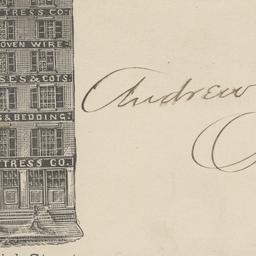 TRESS CO.
OVEN WIRE
SES & COTS.
& BEDDING.
TRESS CO.
Andrew